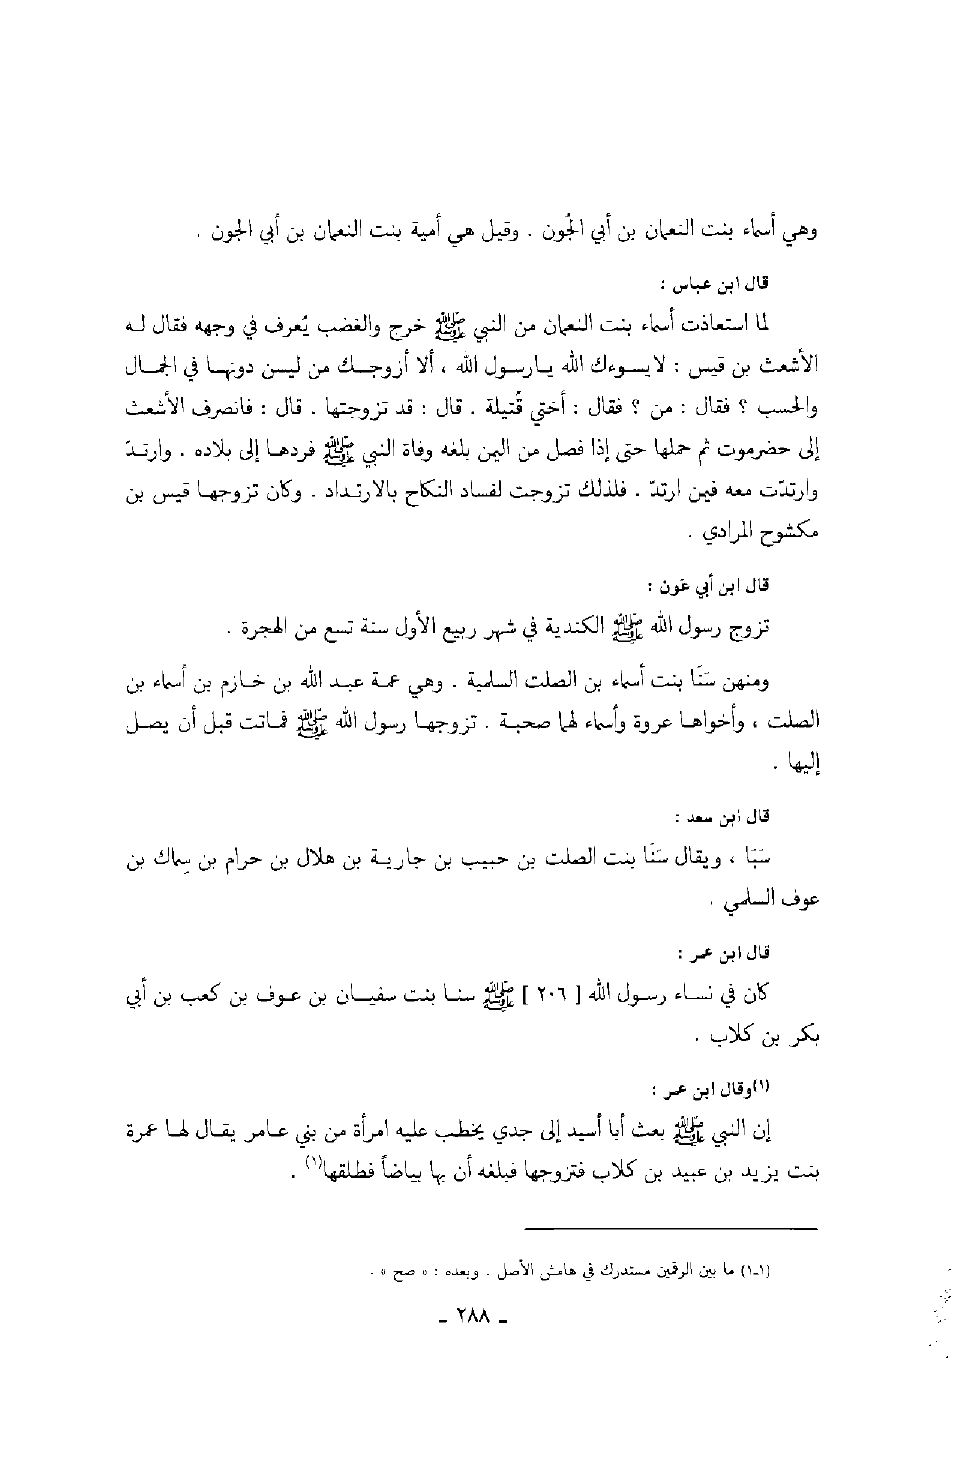 وهي أسماء بنت النعمان بن أبي الجُون . وقيل هي أمية بنت النعمان بن أبي الجون .
قال ابن عباس :
لما استعاذت أسماء بنت النعمان من النبي ﷺ خرج والغضب يُعرف في وجهه فقال له
الأشعث بن قيس : لا يسوءك الله يا رسول الله ، ألا أزوجك من ليس دونها في الجمال
والحسب ؟ فقال : من ؟ فقال : أختي قُتيلة . قال : قد تزوجتها . قال : فانصرف الأشعث
إلى حضرموت ثم حملها حتى إذا فصل من اليمن بلغه وفاة النبي ﷺ فردها إلى بلاده . وارتدّ
وارتدّت معه فيمن ارتدّ . فلذلك تزوجت لفساد النكاح بالارتداد . وكان تزوجها قيس بن
مكشوح المرادي .
قال ابن أبي عون :
تزوج رسول الله ﷺ الكندية في شهر ربيع الأول سنة تسع من الهجرة .
ومنهن سَنَا بنت أسماء بن الصلت السلمية . وهي عمة عبد الله بن خازم بن أسماء بن
الصلت ، وأخواها عروة وأسماء لهما صحبة . تزوجها رسول الله ﷺ فماتت قبل أن يصل
إليها .
قال ابن سعد :
سَبَا ، ويقال سَنَا بنت الصلت بن حبيب بن جارية بن هلال بن حرام بن سِماك بن
عوف السلمي .
قال ابن عمر :
كان في نساء رسول الله [ ٢٠٦ ] ﷺ سنا بنت سفيان بن عوف بن كعب بن أبي
بكر بن كلاب .
(١)وقال ابن عمر :
إن النبي ﷺ بعث أبا أسيد إلى جدي يخطب عليه امرأة من بني عامر يقال لها عمرة
بنت يزيد بن عبيد بن كلاب فتزوجها فبلغه أن بها بياضاً فطلقها(١) .
(١-١) ما بين الرقمين مستدرك في هامش الأصل . وبعده : « صح » .
ـ ٢٨٨ ـ